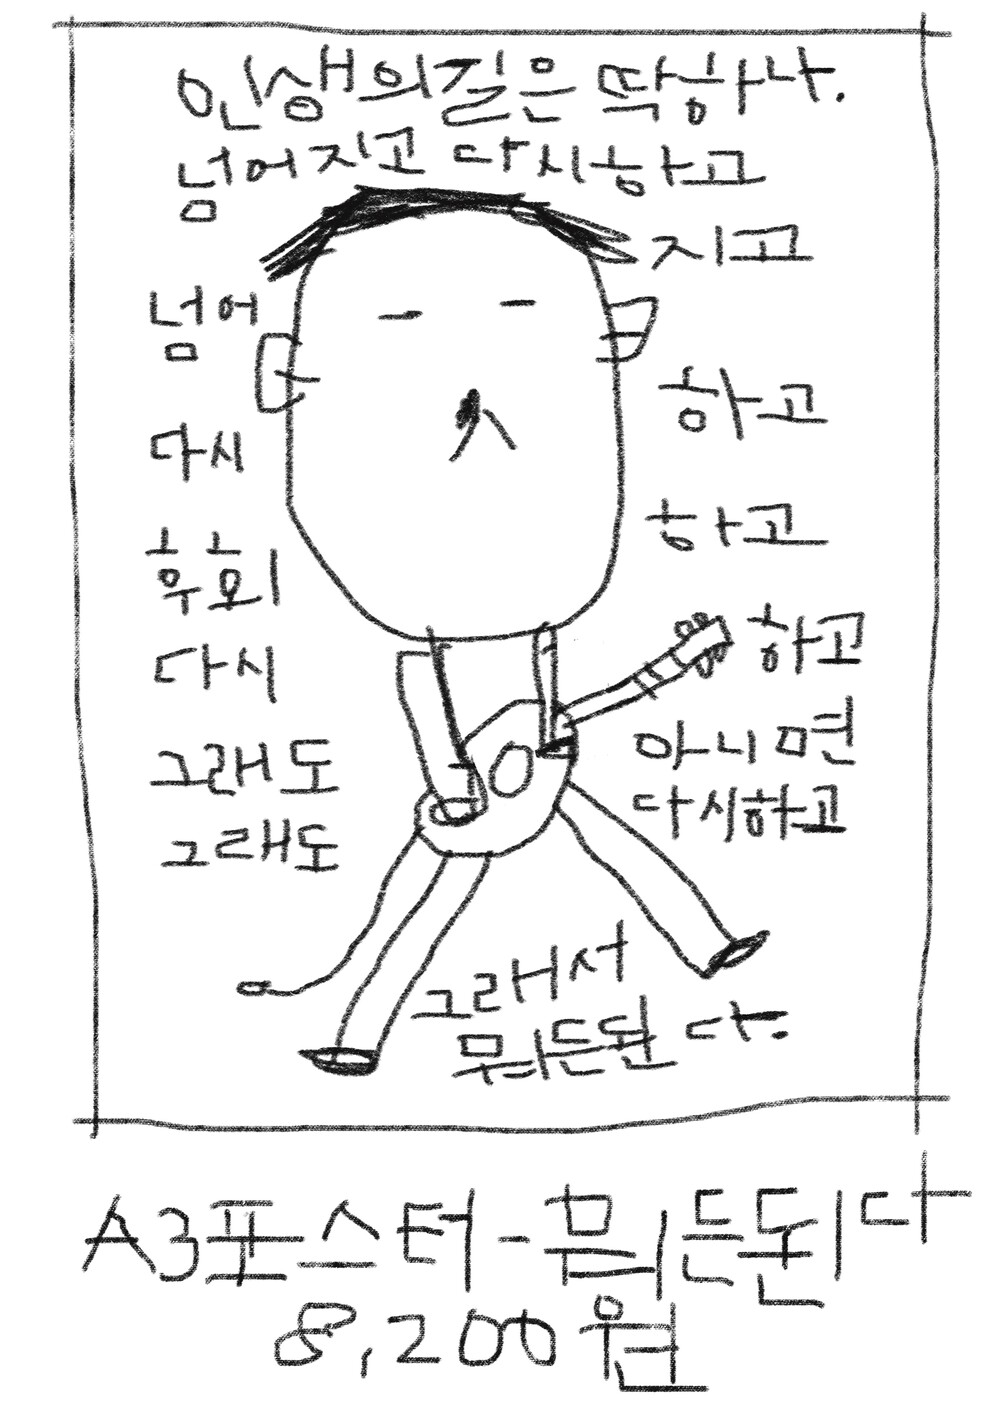 인생의길은 딱하나.
넘어지고 다시하고
지고
넘어
하고
다시
하고
후회
하고
다시
아니면
그래도
다시하고
그래도
그래서
뭐든된다.
A3포스터-뭐든된다
8,200원